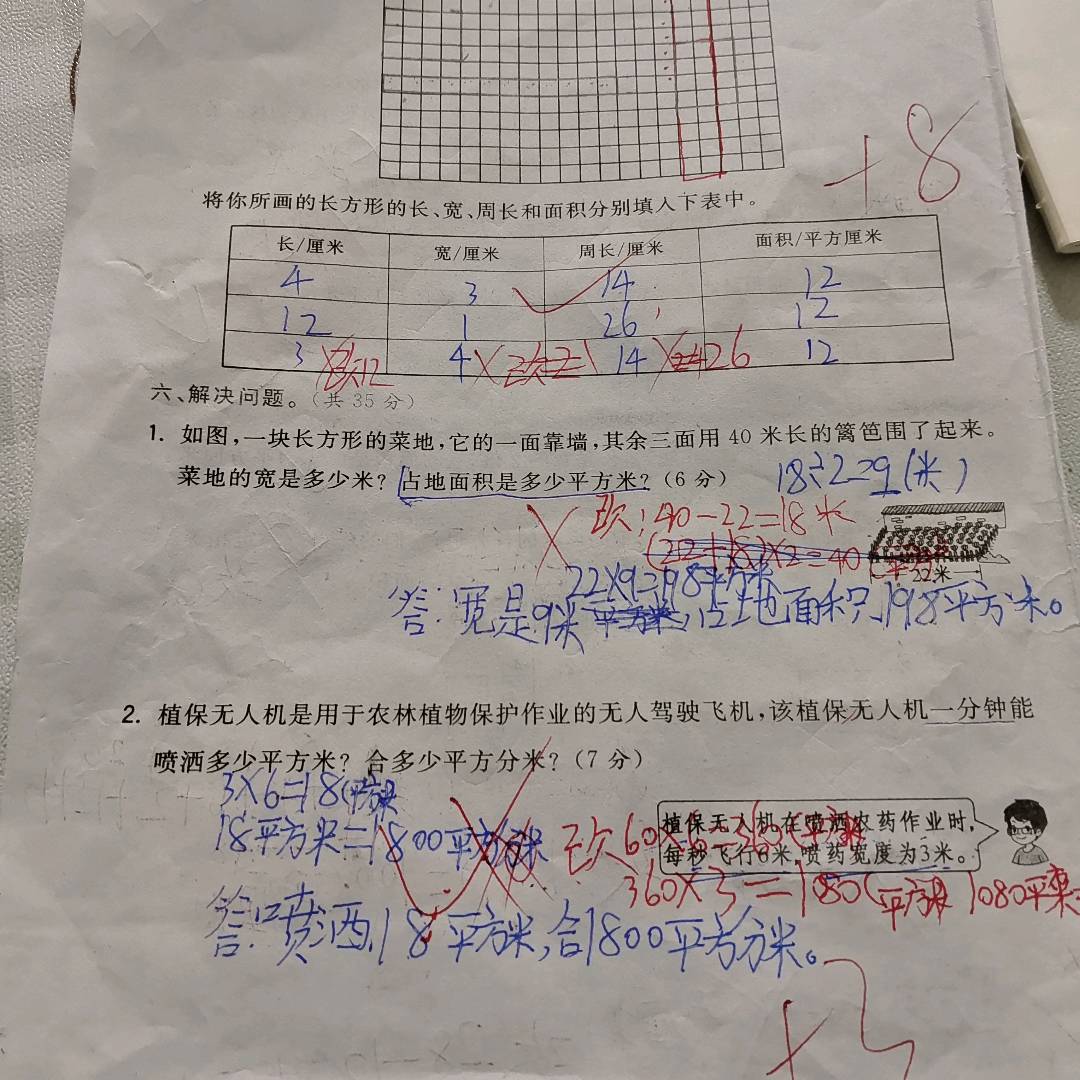 +8
将你所画的长方形的长、宽、周长和面积分别填入下表中。
长/厘米 宽/厘米 周长/厘米 面积/平方厘米
4 3 14 12
12 1 26 12
3 12 4 1 14 26 12
六、解决问题。(共 35 分)
1. 如图,一块长方形的菜地,它的一面靠墙,其余三面用 40 米长的篱笆围了起来。
菜地的宽是多少米? 占地面积是多少平方米? (6 分)
18÷2=9(米)
40-22=18米
22米
22×9=198平方米
答:宽是9米,占地面积198平方米。
2. 植保无人机是用于农林植物保护作业的无人驾驶飞机,该植保无人机一分钟能
喷洒多少平方米? 合多少平方分米? (7 分)
3×6=18(平方米
18平方米=1800平方分米
植保无人机在喷洒农药作业时,
每秒飞行6米,喷药宽度为3米。
60×6=360(平方米
360×3=1080(平方米
答:喷洒18平方米,合1800平方分米。
+3